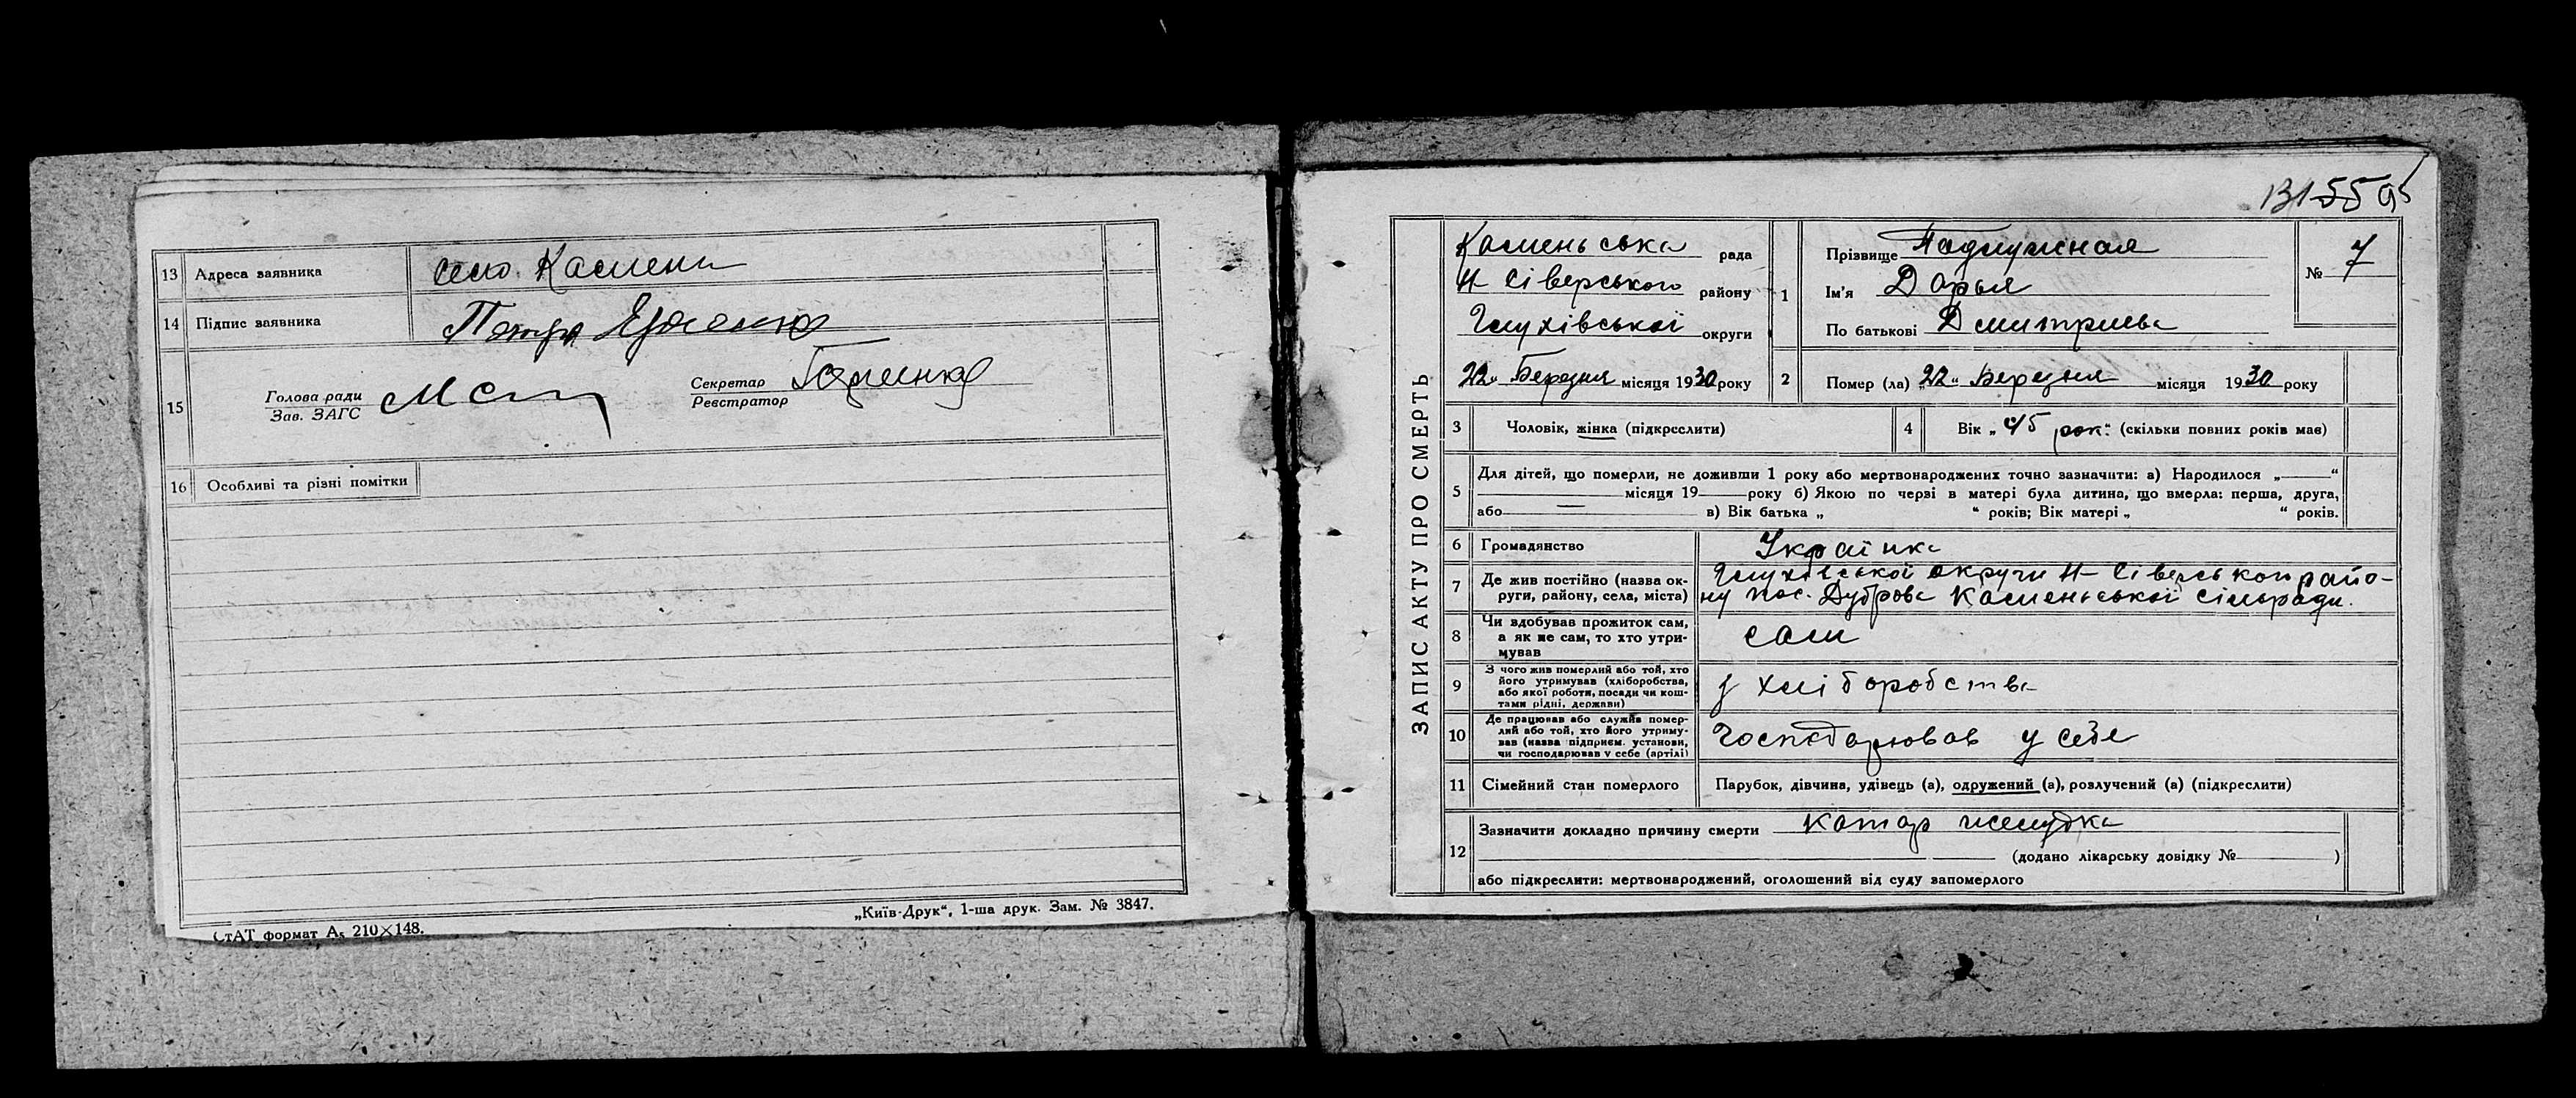 13 Адреса заявника село Камень
14 Підпис заявника Петро
15 Голова ради
Зав. ЗАГС
Секретар
Реєстратор
16 Особливі та різні помітки
СтАТ формат А₅ 210×148.
„Київ-Друк“, 1-ша друк. Зам. № 3847.
131 55 95
ЗАПИС АКТУ ПРО СМЕРТЬ
Каменьська рада
Н-Сіверського району
Глухівської округи
22 „ Березня місяця 1930 року
1 Прізвище Падлужная
Ім'я Дарья
По батькові Дмитриева
№ 7
2 Помер (ла) „22“ Березня місяця 1930 року
3 Чоловік, жінка (підкреслити)
4 Вік „45 рок.“ (скільки повних років має)
5 Для дітей, що померли, не доживши 1 року або мертвонароджених точно зазначити: а) Народилося „ “
місяця 19 року б) Якою по черзі в матері була дитина, що вмерла: перша, друга,
або в) Вік батька „ “ років; Вік матері „ “ років.
6 Громадянство Українка
7 Де жив постійно (назва округи, району, села, міста) Глухівської округи Н-Сіверського райо-
ну пос. Дуброва Каменьської сільради.
8 Чи вдобував прожиток сам,
а як не сам, то хто утри-
мував сам
9 З чого жив померлий або той, хто
його утримував (хліборобства,
або якої роботи, посади чи кош-
тами рідні, держави) з хліборобства
10 Де працював або служив помер-
лий або той, хто його утриму-
вав (назва підприєм. установи,
чи господарював у себе (артілі) Господарював у себе
11 Сімейний стан померлого Парубок, дівчина, удівець (а), одружений (а), розлучений (а) (підкреслити)
12 Зазначити докладно причину смерти Катар желудка
(додано лікарську довідку № )
або підкреслити: мертвонароджений, оголошений від суду запомерлого